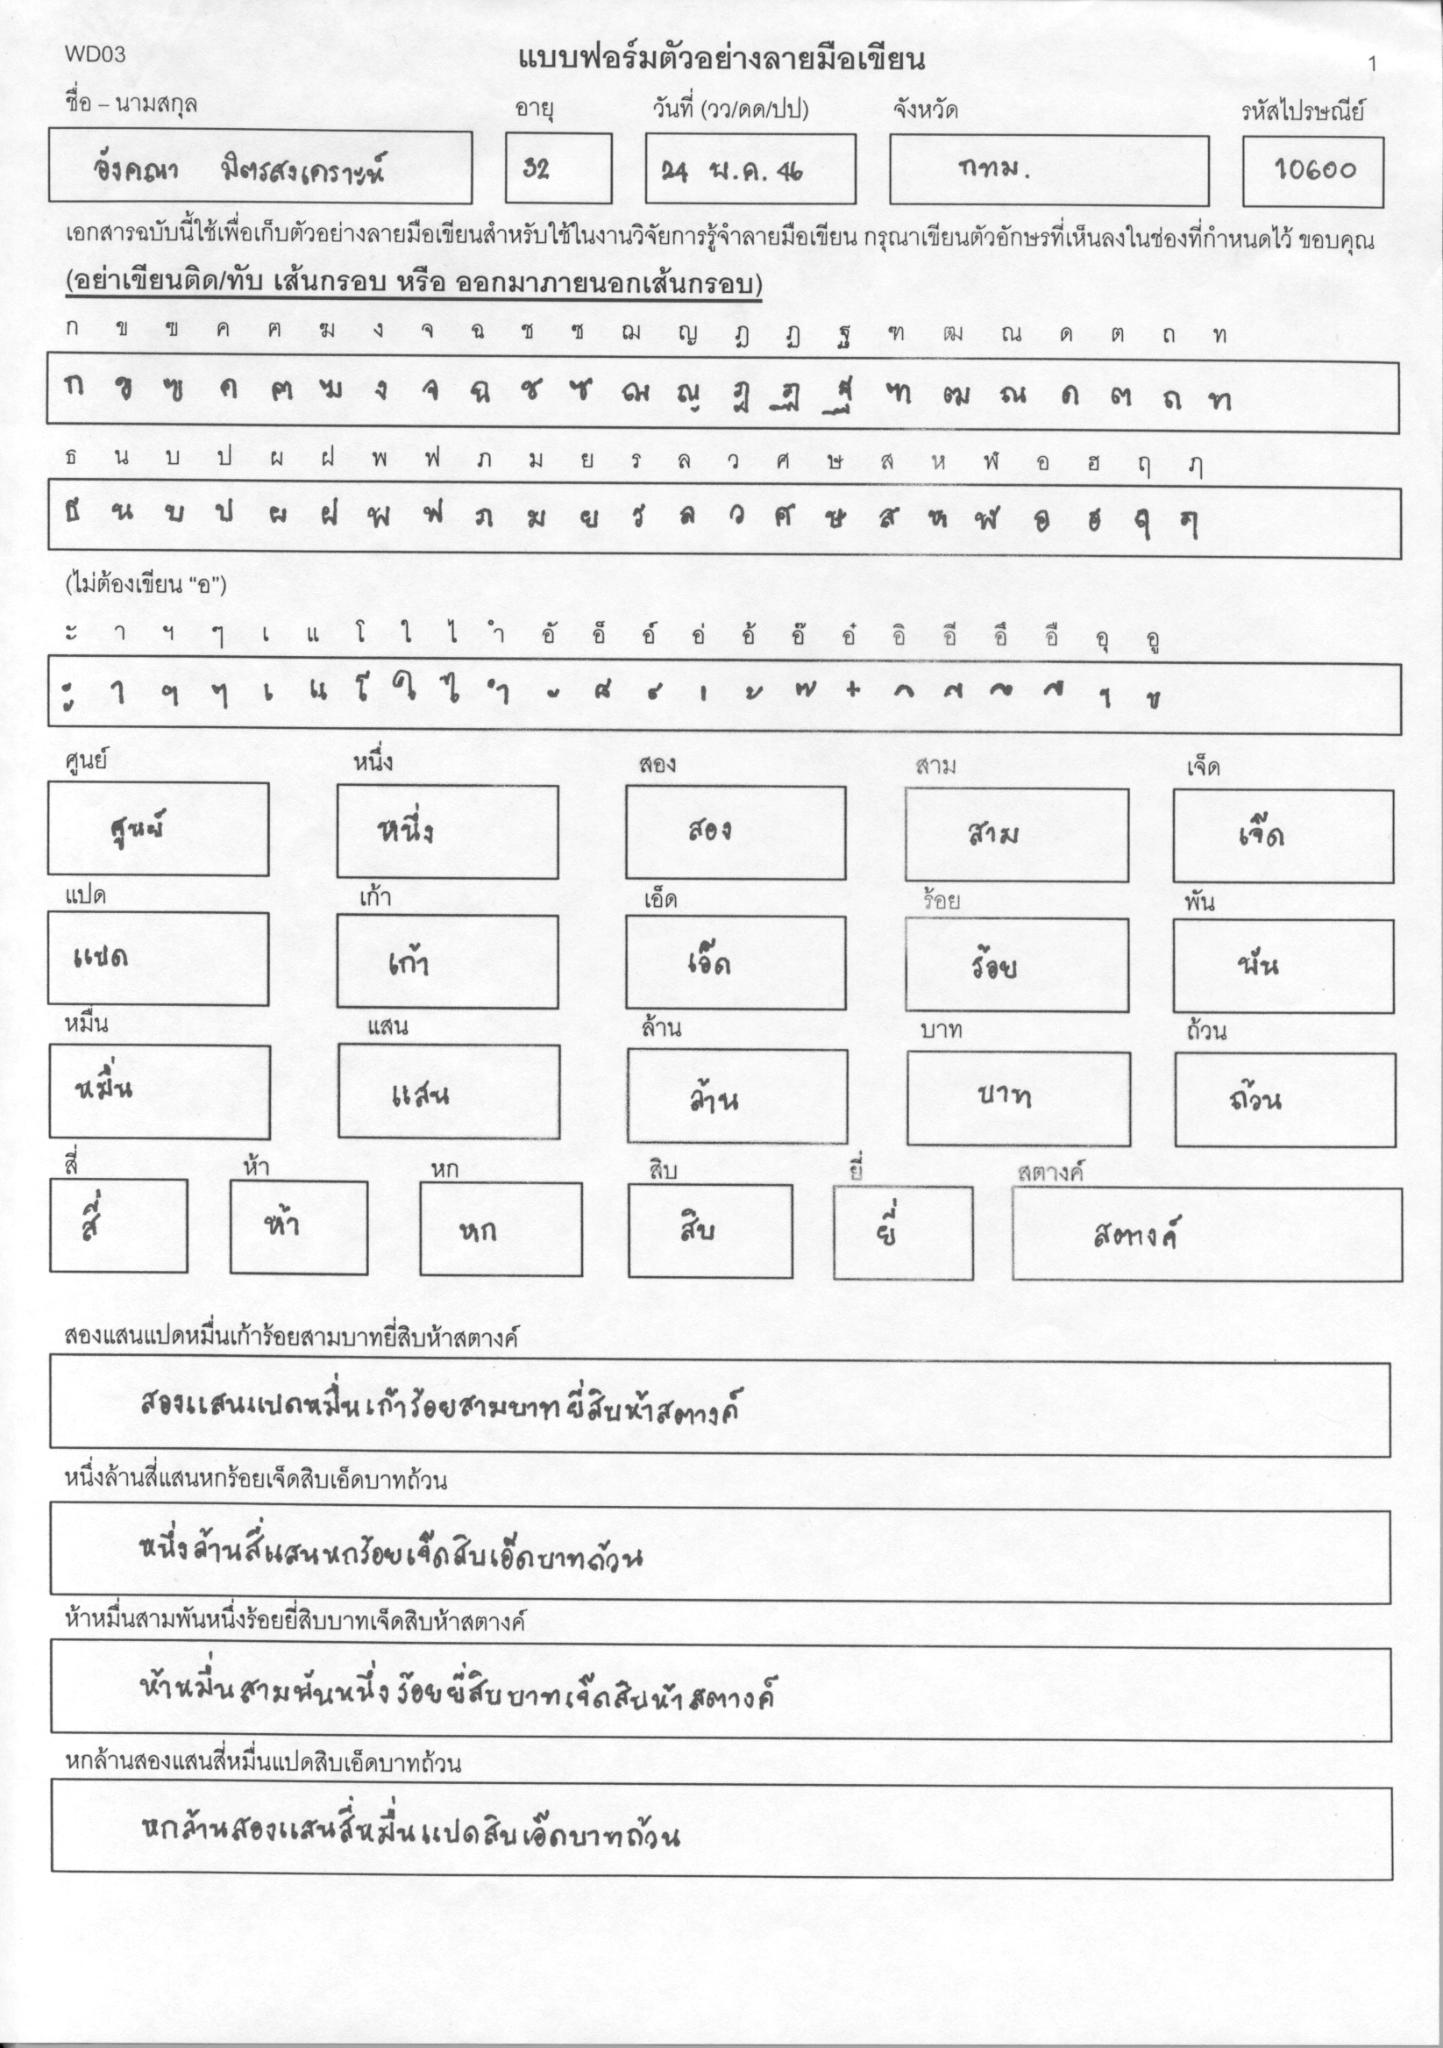 WD03 แบบฟอร์มตัวอย่างลายมือเขียน 1
ชื่อ – นามสกุล อายุ วันที่ (วว/ดด/ปป) จังหวัด รหัสไปรษณีย์
อังคณา มิตรสงเคราะห์ 32 24 พ.ค. 46 กทม. 10600
เอกสารฉบับนี้ใช้เพื่อเก็บตัวอย่างลายมือเขียนสำหรับใช้ในงานวิจัยการรู้จำลายมือเขียน กรุณาเขียนตัวอักษรที่เห็นลงในช่องที่กำหนดไว้ ขอบคุณ
(อย่าเขียนติด/ทับ เส้นกรอบ หรือ ออกมาภายนอกเส้นกรอบ)
ก ข ฃ ค ฅ ฆ ง จ ฉ ช ซ ฌ ญ ฎ ฏ ฐ ฑ ฒ ณ ด ต ถ ท
ก ข ฃ ค ฅ ฆ ง จ ฉ ช ซ ฌ ญ ฎ ฏ ฐ ฑ ฒ ณ ด ต ถ ท
ธ น บ ป ผ ฝ พ ฟ ภ ม ย ร ล ว ศ ษ ส ห ฬ อ ฮ ฤ ฦ
ธ น บ ป ผ ฝ พ ฟ ภ ม ย ร ล ว ศ ษ ส ห ฬ อ ฮ ฤ ฦ
(ไม่ต้องเขียน “อ”)
ะ า ฯ ๆ เ แ โ ใ ไ ำ อั อ็ อ์ อ่ อ้ อ๊ อ๋ อิ อี อึ อื อุ อู
ะ า ฯ ๆ เ แ โ ใ ไ ำ ั ็ ์ ่ ้ ๊ ๋ ิ ี ึ ื ุ ู
ศูนย์ หนึ่ง สอง สาม เจ็ด
ศูนย์ หนึ่ง สอง สาม เจ็ด
แปด เก้า เอ็ด ร้อย พัน
แปด เก้า เอ็ด ร้อย พัน
หมื่น แสน ล้าน บาท ถ้วน
หมื่น แสน ล้าน บาท ถ้วน
สี่ ห้า หก สิบ ยี่ สตางค์
สี่ ห้า หก สิบ ยี่ สตางค์
สองแสนแปดหมื่นเก้าร้อยสามบาทยี่สิบห้าสตางค์
สองแสนแปดหมื่นเก้าร้อยสามบาทยี่สิบห้าสตางค์
หนึ่งล้านสี่แสนหกร้อยเจ็ดสิบเอ็ดบาทถ้วน
หนึ่งล้านสี่แสนหกร้อยเจ็ดสิบเอ็ดบาทถ้วน
ห้าหมื่นสามพันหนึ่งร้อยยี่สิบบาทเจ็ดสิบห้าสตางค์
ห้าหมื่นสามพันหนึ่งร้อยยี่สิบบาทเจ็ดสิบห้าสตางค์
หกล้านสองแสนสี่หมื่นแปดสิบเอ็ดบาทถ้วน
หกล้านสองแสนสี่หมื่นแปดสิบเอ็ดบาทถ้วน